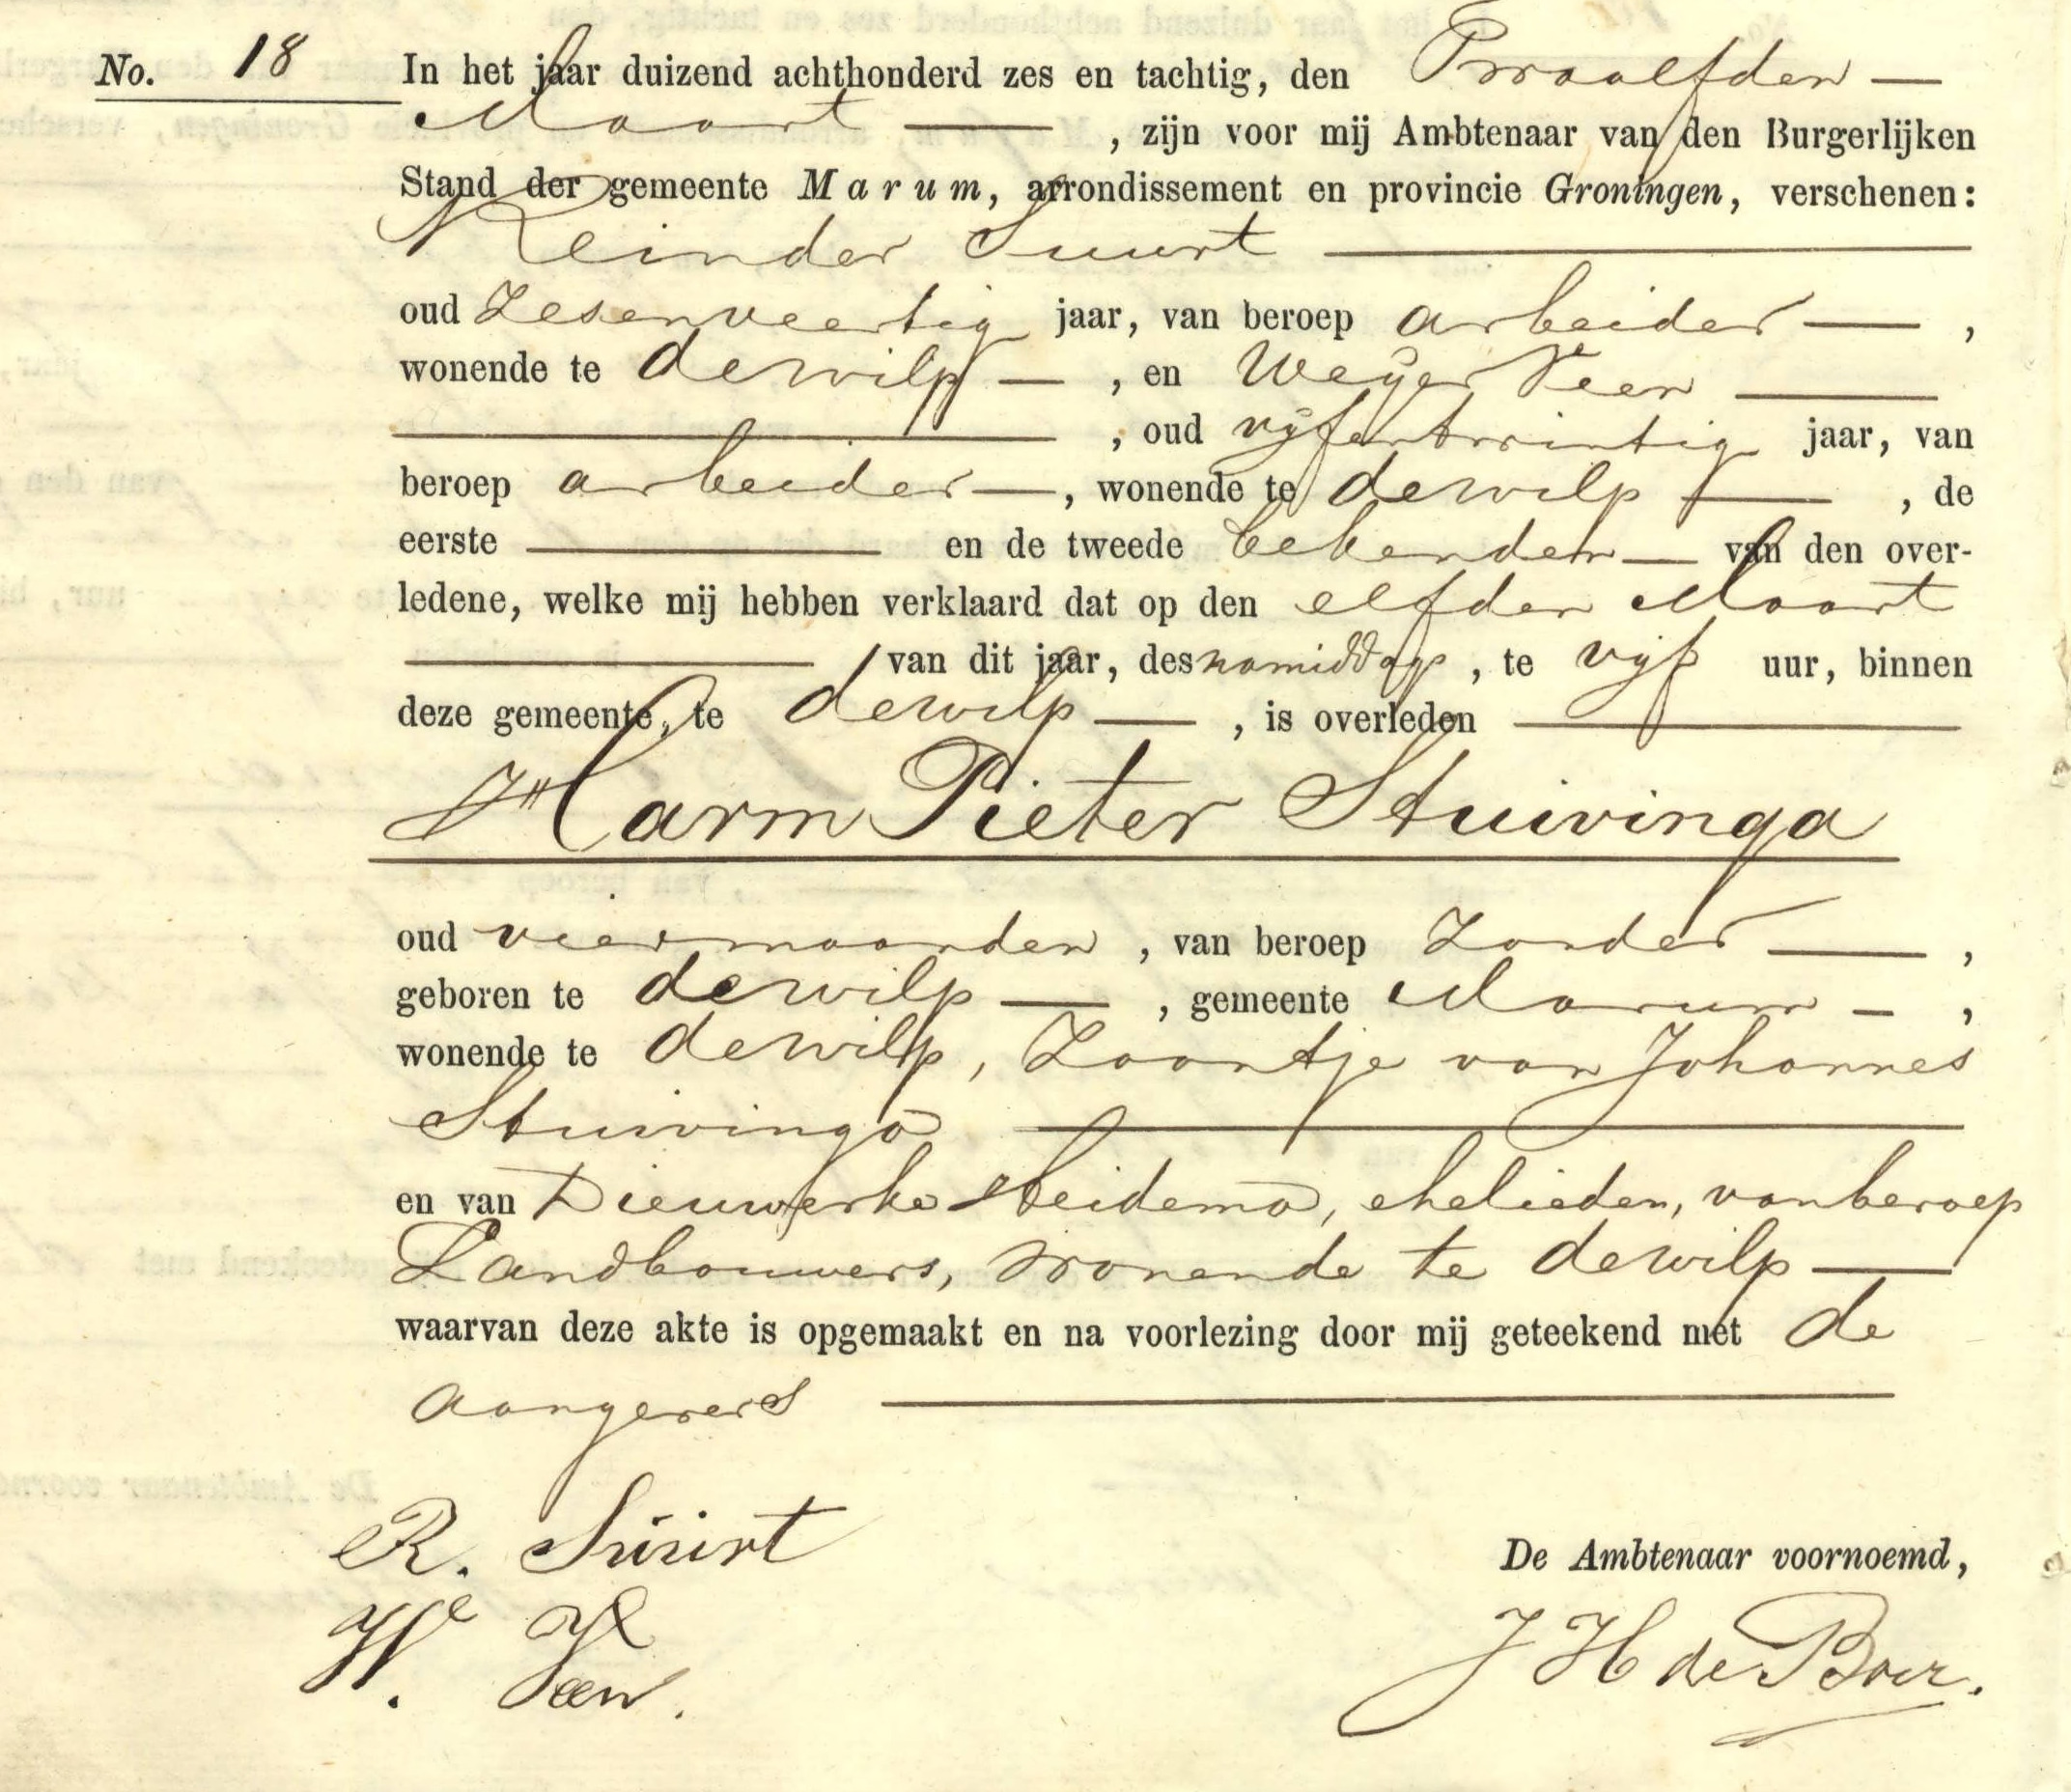 No. 18 In het jaar duizend achthonderd zes en tachtig, den Twaalfden —
Maart — , zijn voor mij Ambtenaar van den Burgerlijken
Stand der gemeente Marum, arrondissement en provincie Groningen, verschenen:
Reinder Suurt —
oud Zesenveertig jaar, van beroep arbeider — ,
wonende te dewilp — , en Weijer Veen —
— , oud vijfentwintig jaar, van
beroep arbeider —, wonende te dewilp — , de
eerste — en de tweede bekenden — van den over-
ledene, welke mij hebben verklaard dat op den elfden Maart
— van dit jaar, des namiddags , te vijf uur, binnen
deze gemeente, te dewilp — , is overleden —
Harm Pieter Stuivinga
oud vier maanden , van beroep Zonder — ,
geboren te dewilp — , gemeente Marum — ,
wonende te dewilp, Zoontje van Johannes
Stuivinga —
en van Dieuwerke Heidema, ehelieden, van beroep
Landbouwers, wonende te dewilp —
waarvan deze akte is opgemaakt en na voorlezing door mij geteekend met de
aangevers —
R. Suurt
W. Veen.
De Ambtenaar voornoemd,
J H de Boer.